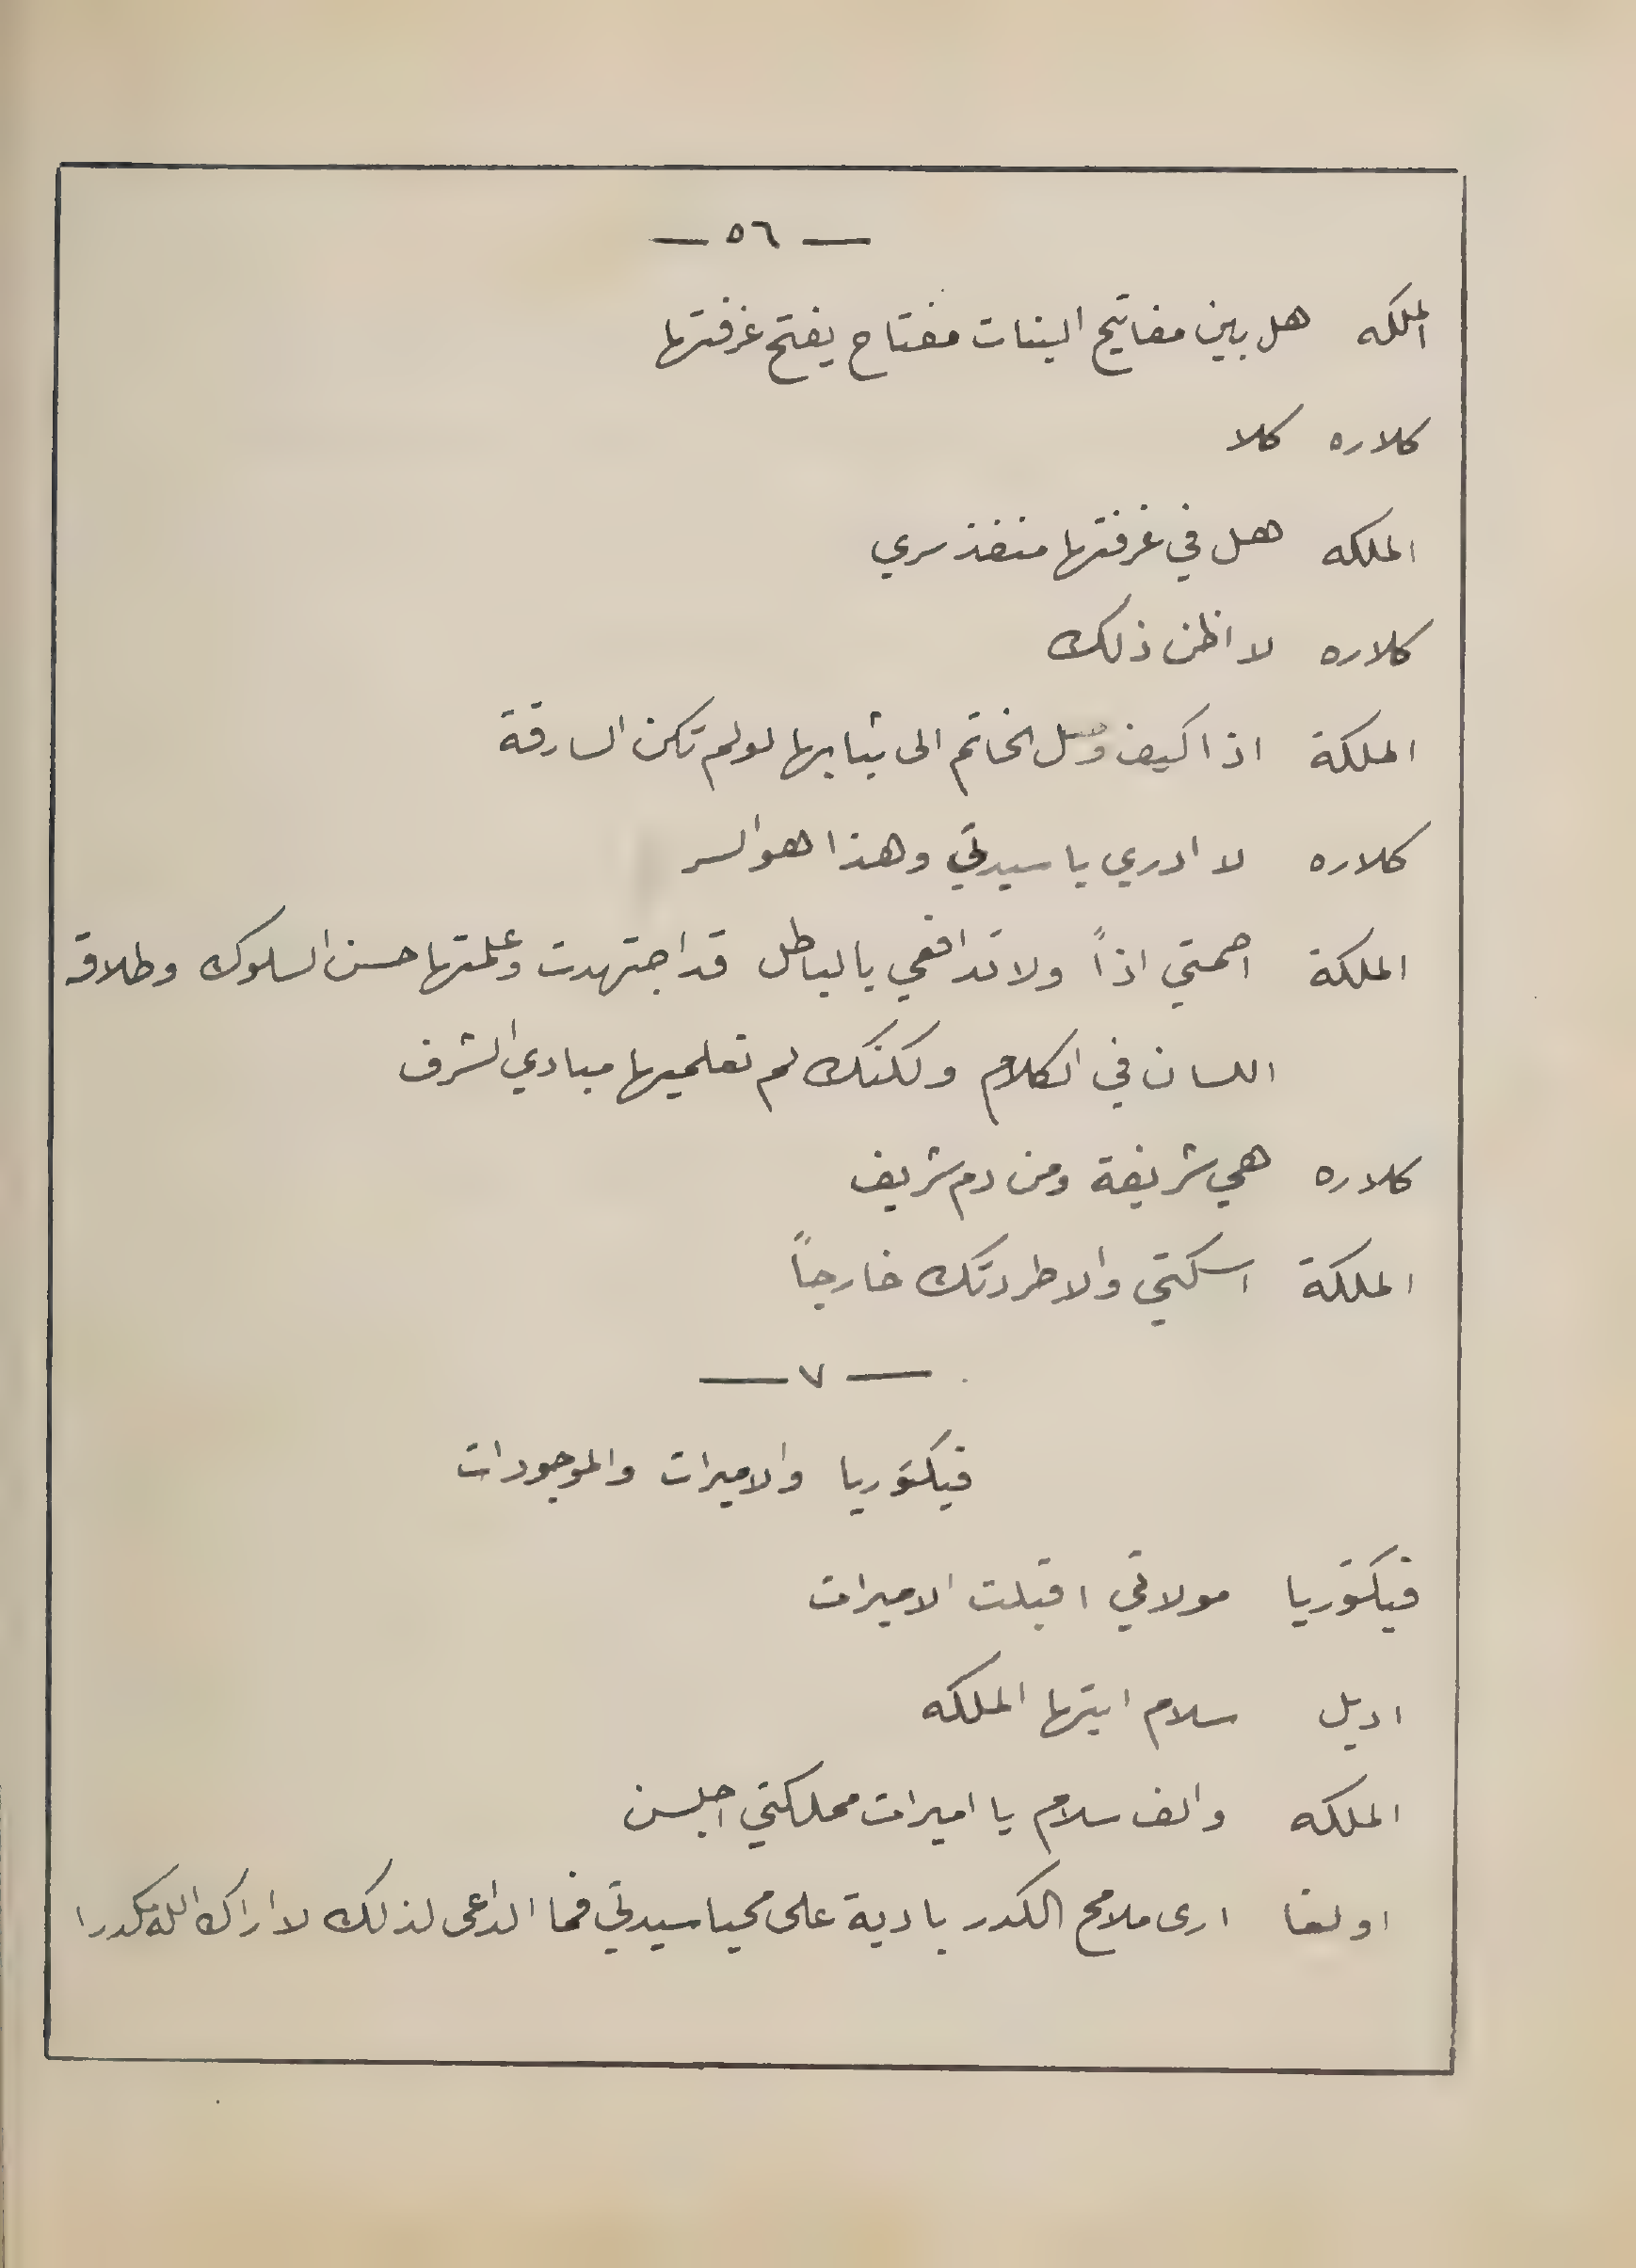 — ٥٦ —
الملكه هل بين مفاتيح البنات مفتاح يفتح غرفتها
كلاره كلا
الملكه هل في غرفتها منفذ سري
كلاره لا اظن ذلك
الملكة اذا كيف وصل الخاتم الى ثيابها لو لم تكن السارقة
كلاره لا ادري يا سيدتي وهذا هو السر
الملكة اصمتي اذاً ولا تدافعي بالباطل قد اجتهدت وعلمتها حسن السلوك وطلاقه
اللسان في الكلام ولكنك لم تعلميها مبادي الشرف
كلاره هي شريفة ومن دم شريف
الملكة اسكتي والا طردتك خارجاً
— ٧ —
فيكتوريا والاميرات والموجودات
فيكتوريا مولاتي اقبلت الاميرات
اديل سلام ايتها الملكه
الملكه والف سلام يا اميرات مملكتي اجلسن
اولغا ارى ملامح الكدر بادية على محيا سيدتي فما الداعى لذلك لا اراك الله مكدرا